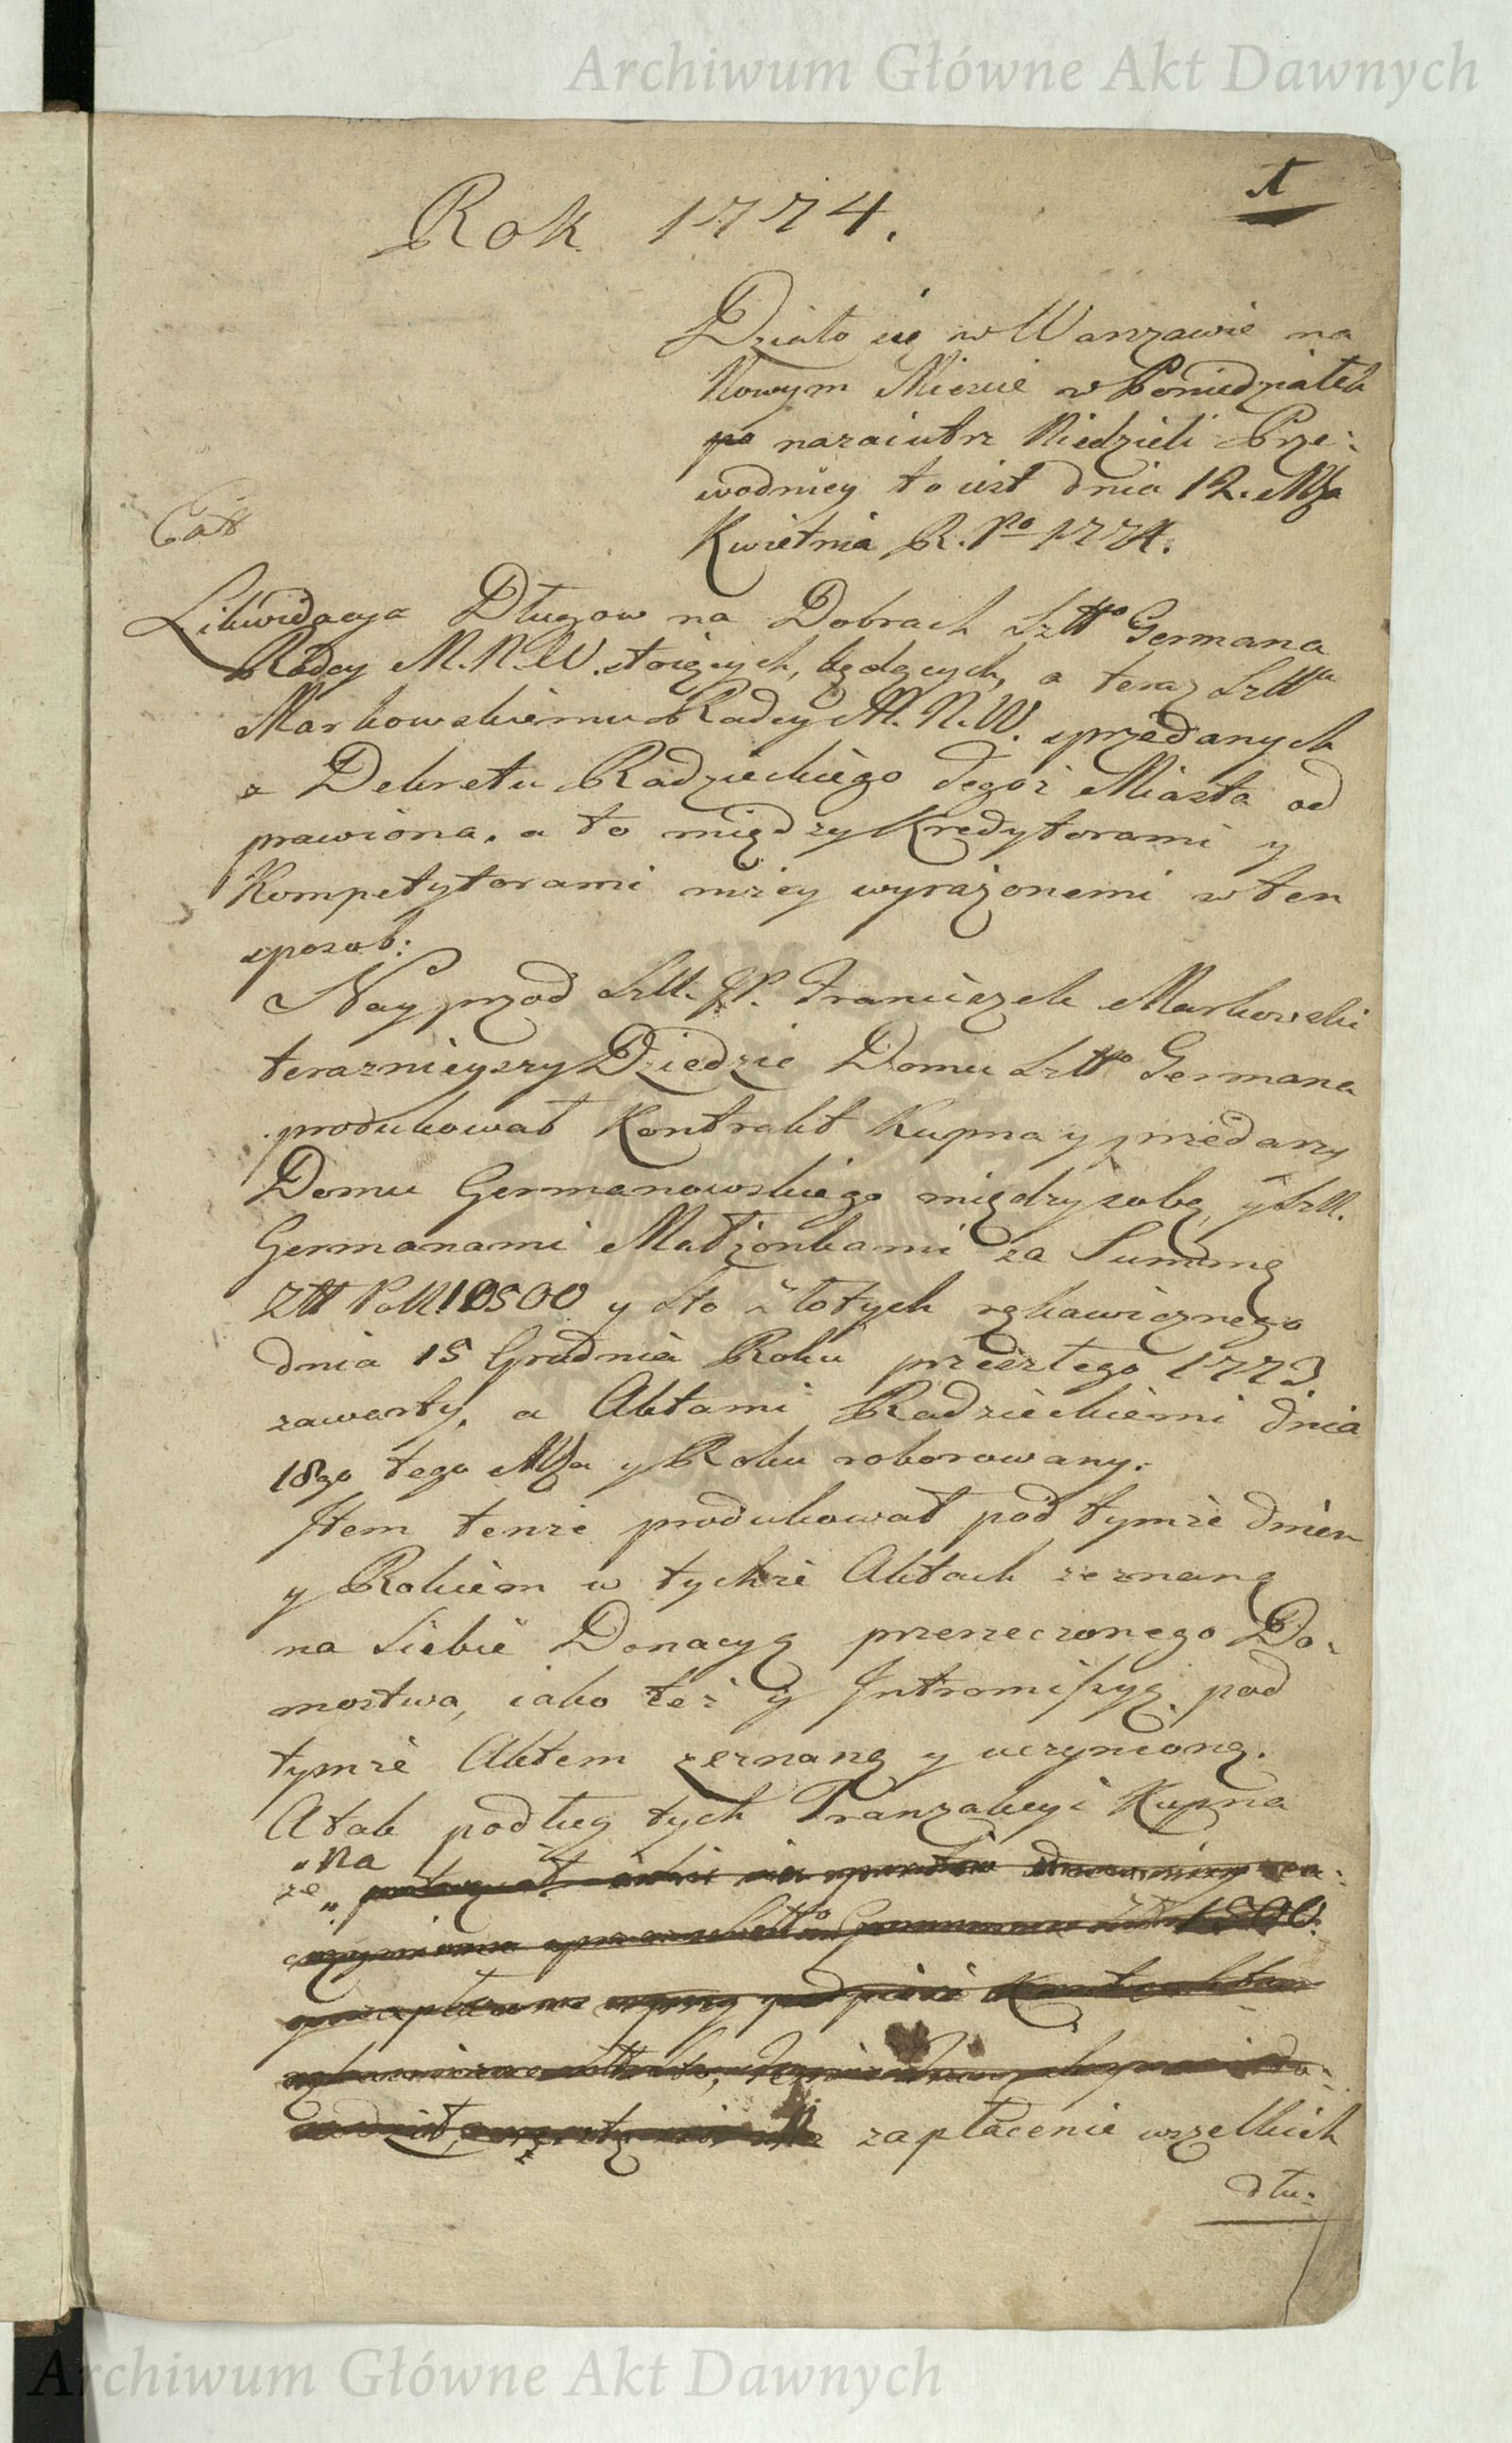 Archiwum Główne Akt Dawnych
1
Rok 1774.
Działo się w Warszawie na
Nowym Mieście w Poniedziałek
po nazaiutrz Niedzieli Prze:
wodniey to iest dnia 12. Mca
Kwietnia R. Po 1774.
Likwidacya Długow na Dobrach Szltto Germana
Radcy M. N. W. stoięcych, będących, a teraz Szlttu
Markowskiemu Radcy M. N. W. sprzedanych
z Dekretu Radzieckiego tegoż Miasta od
prawiona, a to między Kredytorami y
Kompetytorami niżey wyrażonemi w ten
sposob:
Nayprzod Szltt. JP. Franciszek Markowski
terazniegszy Dziedzic Domu Szltto Germana
produkował Kontrakt Kupna y przedarzy
Domu Germanowskiego między sobą, y Szltt.
Germanami Małżonkami za Summę
Złtt Polł 10500 y sto złotych rękawicznego
dnia 15 Grudnia Roku przeszłego 1773.
zawarty, a Aktami Radzieckiemi dnia
18go tego Mca y Roku roborowany.
Item tenże produkował pod tymże dniem
y Rokiem w tychże Aktach zeznaną
na Siebie Donacyą przerzeczonego Do:
mostwa, iako też y Intromissyą pod
tymże Aktem zeznaną y uczynioną.
A tak podług tych Tranzakcyi Kupna
"Na
że "
1500
zapłacenie wszelkich
dłu:
Archiwum Główne Akt Dawnych